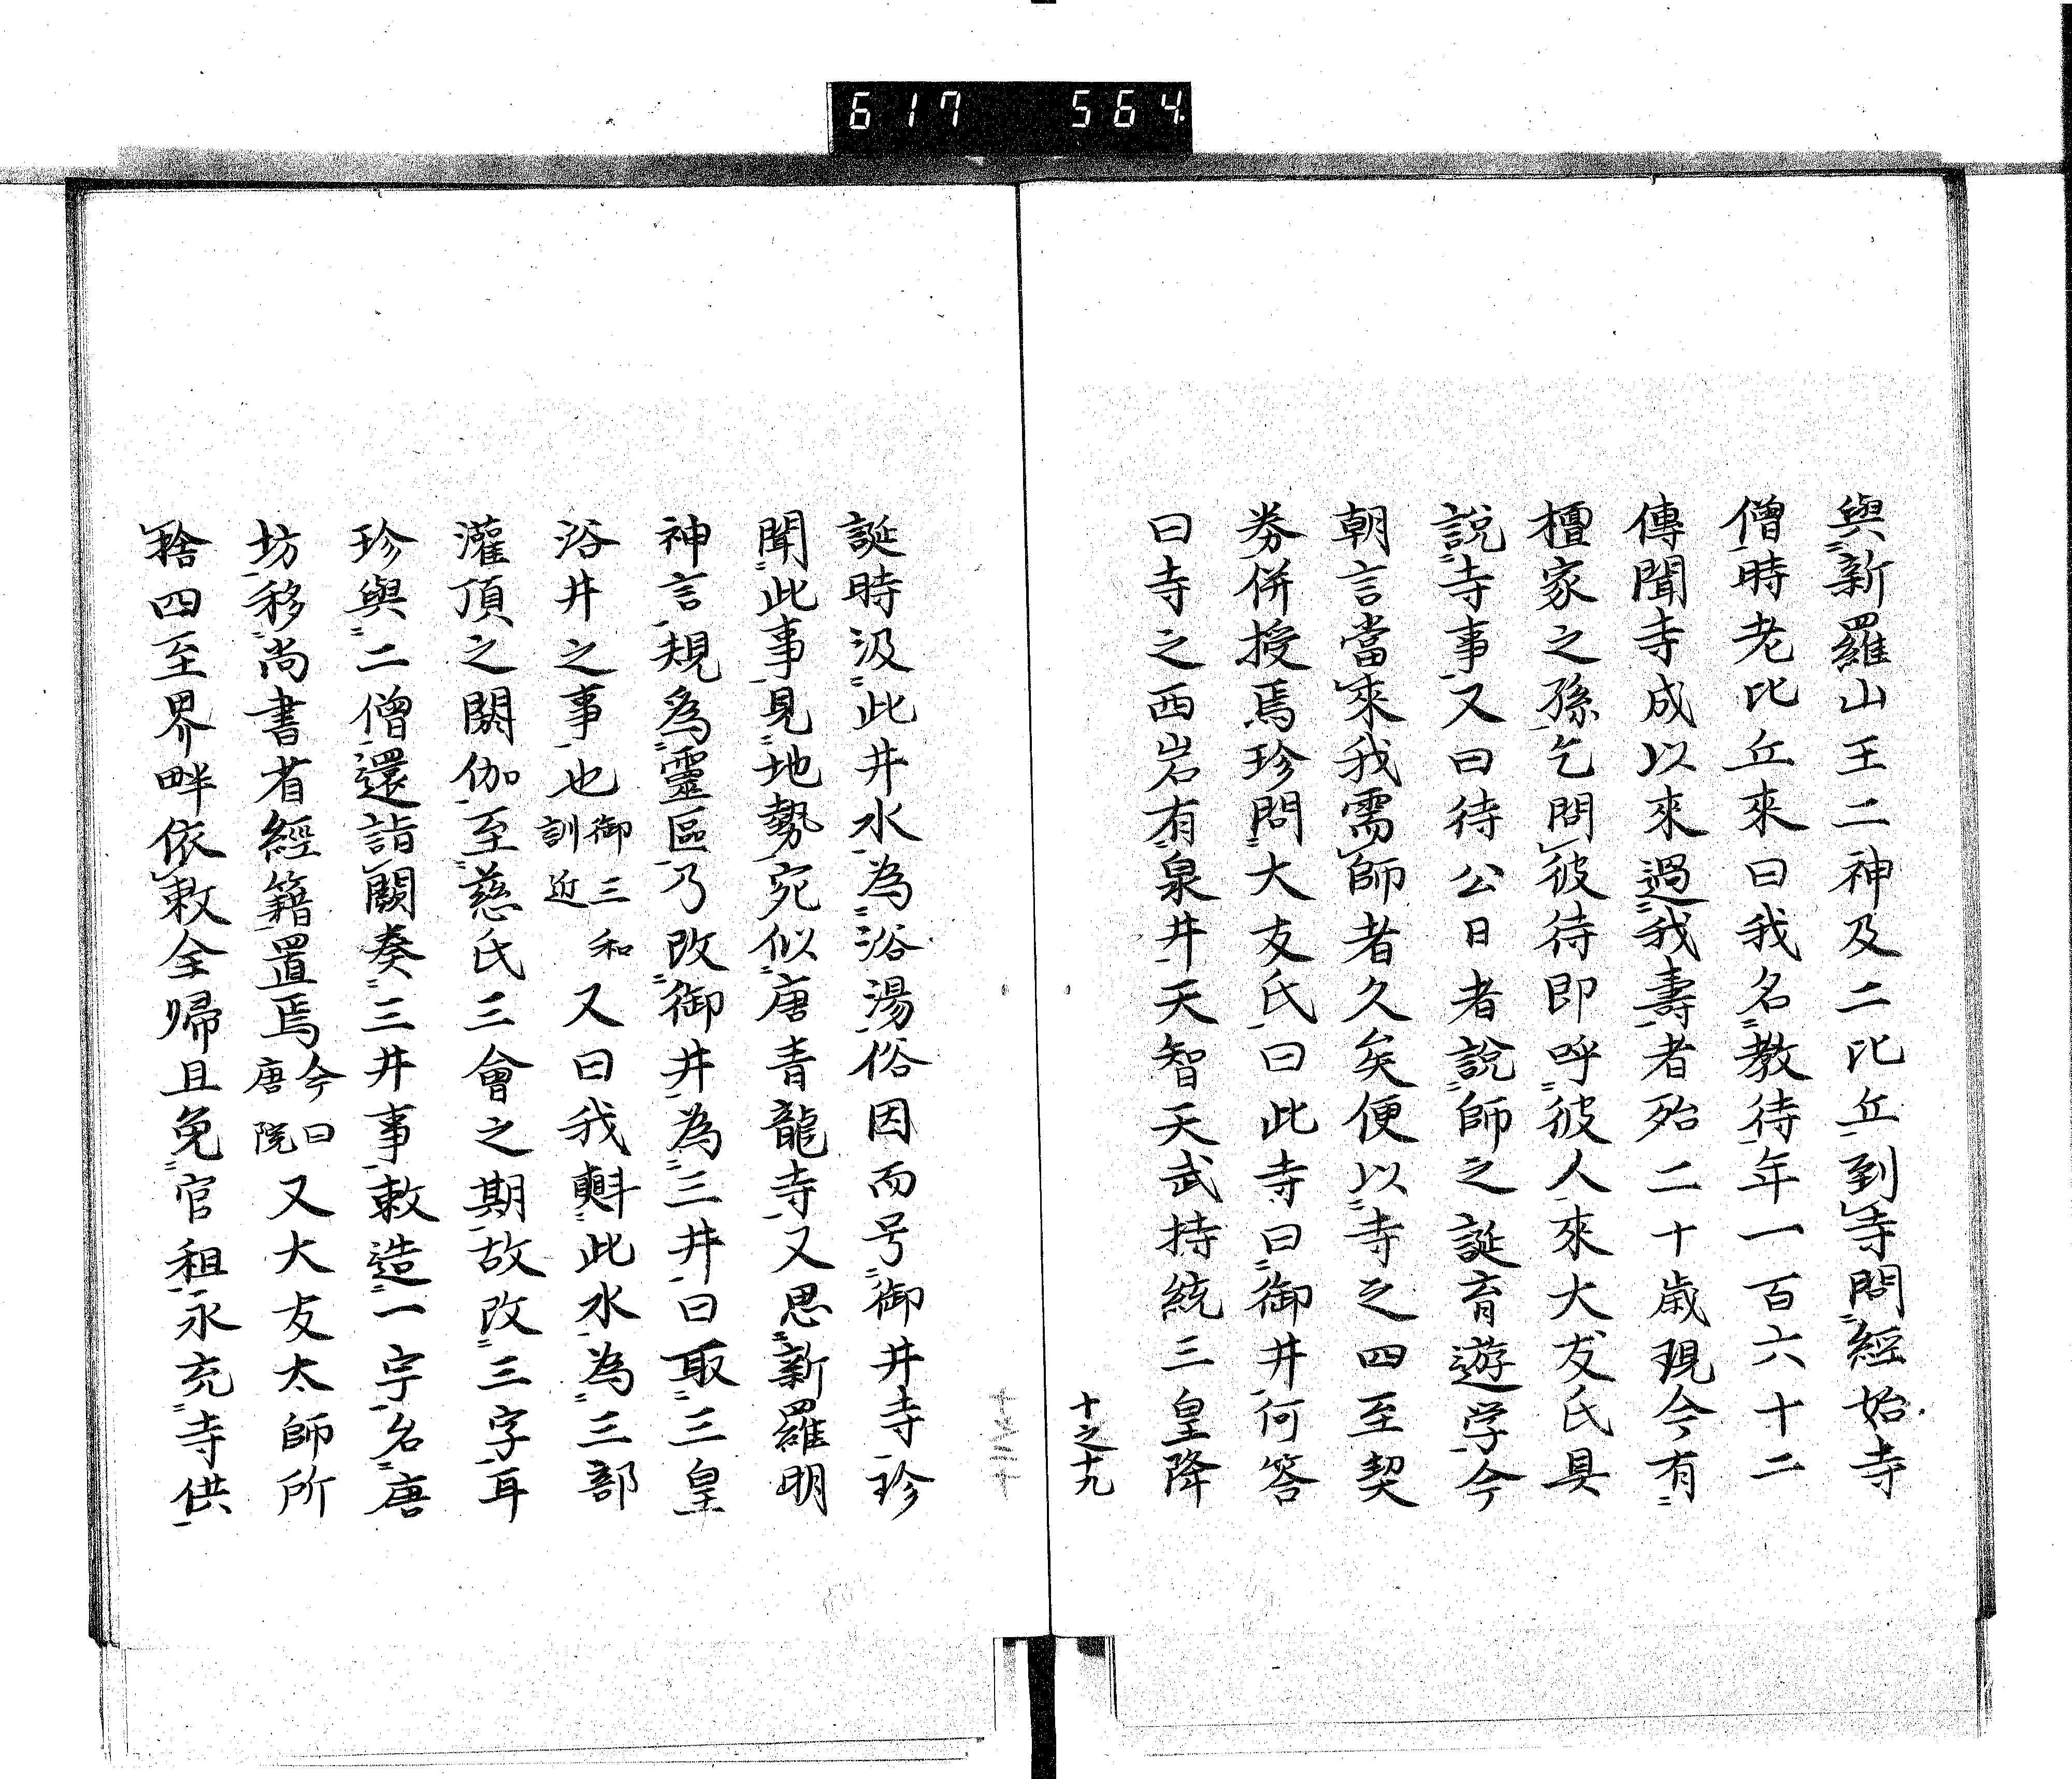 617 564
與新羅山王二神及二比丘到寺問經始寺
僧時老比丘來曰我名教待年一百六十二
傳聞寺成以來過我壽者殆二十歳現今有
檀家之孫乞問彼待即呼彼人來大友氏具
說寺事又曰待公日者說師之誕育遊学今
朝言當來我需師者久矣便以寺之四至契
券併授焉珍問大友氏曰此寺曰御井何答
曰寺之西岩有泉井天智天武持統三皇降
十之十九
誕時汲此井水為浴湯俗因而号御井寺珍
聞此事見地勢宛似唐青龍寺又思新羅明
神言規為靈區乃改御井為三井曰取三皇
浴井之事也御三和訓近又曰我㪺此水為三部
灌頂之閼伽至慈氏三會之期故改三字耳
珍與二僧還詣闕奏三井事敕造一宇名唐
坊移尚書省經籍置焉今曰唐院又大友太師所
捨四至界畔依敕全帰且免官租永充寺供
十之二十